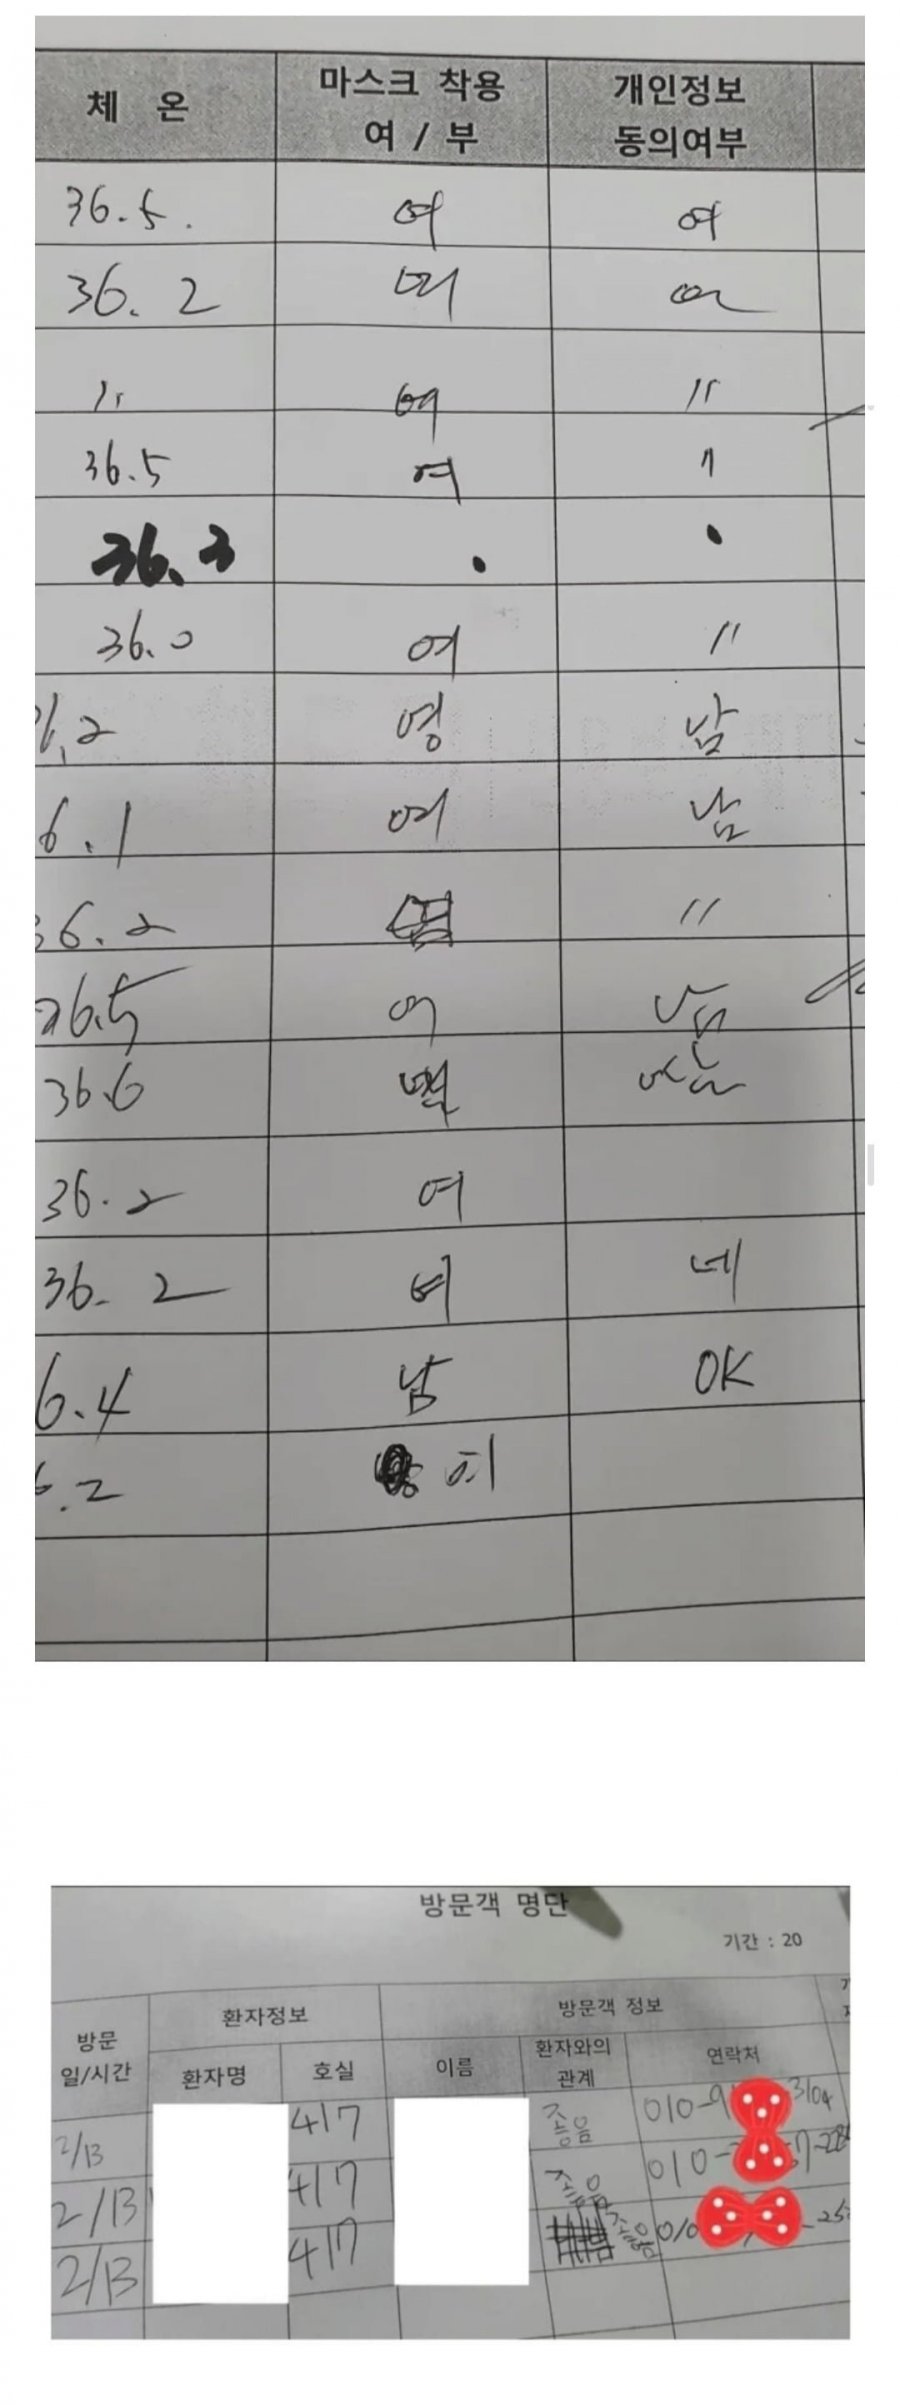 체 온 마스크 착용 여 / 부 개인정보 동의여부
36.5. 여 여
36. 2 여 여
〃 여 〃
36.5 여 〃
36.3 . .
36.0 여 〃
6.2 영 남
6.1 여 남
36.2 〃
36.5 여 남
36.6
36.2 여
36. 2 여 네
6.4 남 OK
.2 여
방문객 명단
기간 : 20
방문 일/시간 환자정보 방문객 정보
환자명 호실 이름 환자와의 관계 연락처
2/13 417 좋음 010-9 3104
2/13 417 010-
2/13 417 010 -25